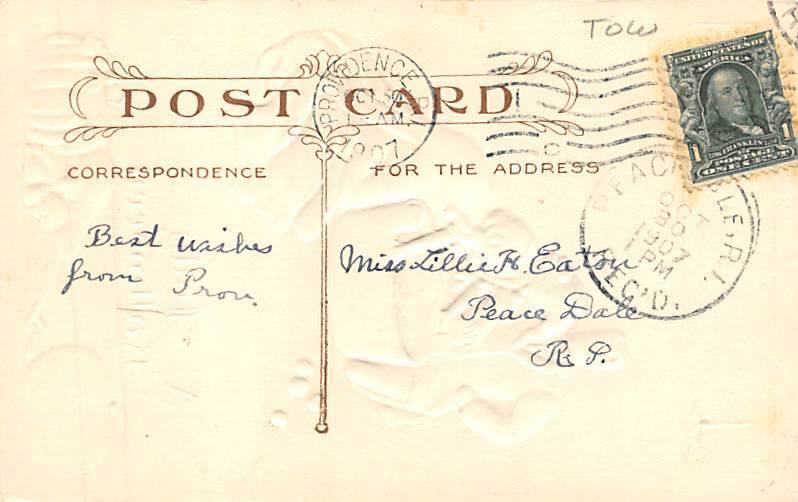 TOW
POST CARD
PROVIDENCE, R.I.
OCT 30
AM
1907
UNITED STATES OF
AMERICA
FRANKLIN
1 POSTAGE 1
ONE CENT
CORRESPONDENCE
FOR THE ADDRESS
PEACE DALE, R.I.
OCT
30
1907
PM
REC'D.
Best wishes
from Prov.
Miss Lillie H. Eaton
Peace Dale
R. I.